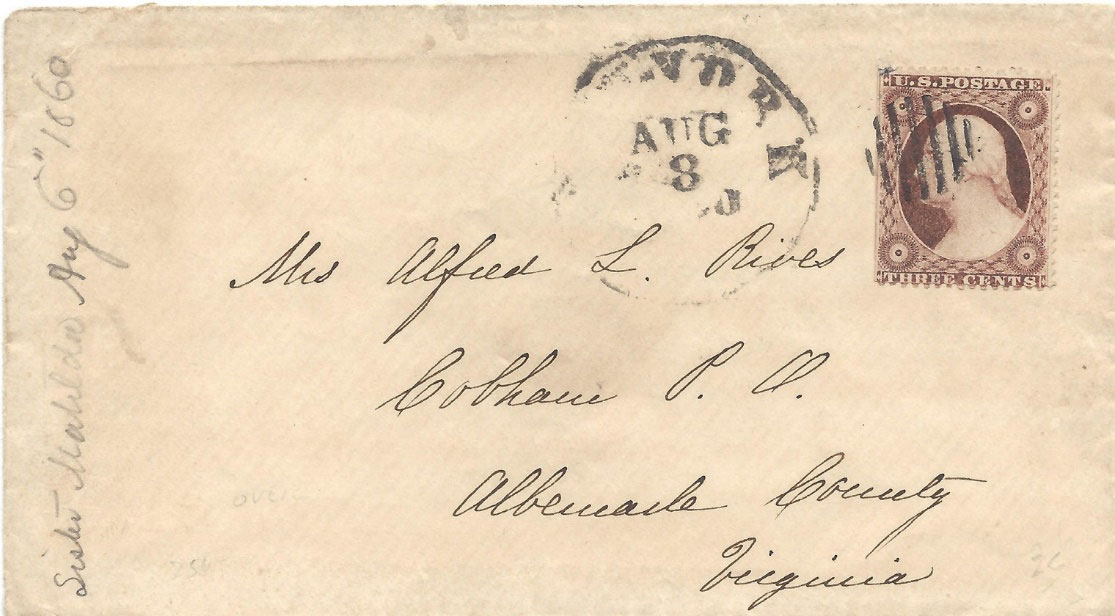 Sister Matilda Aug 6" 1860
YORK
AUG
8
U.S. POSTAGE
THREE CENTS
Mrs Alfred L. Rives
Cobham P. O.
Albemarle County
Virginia